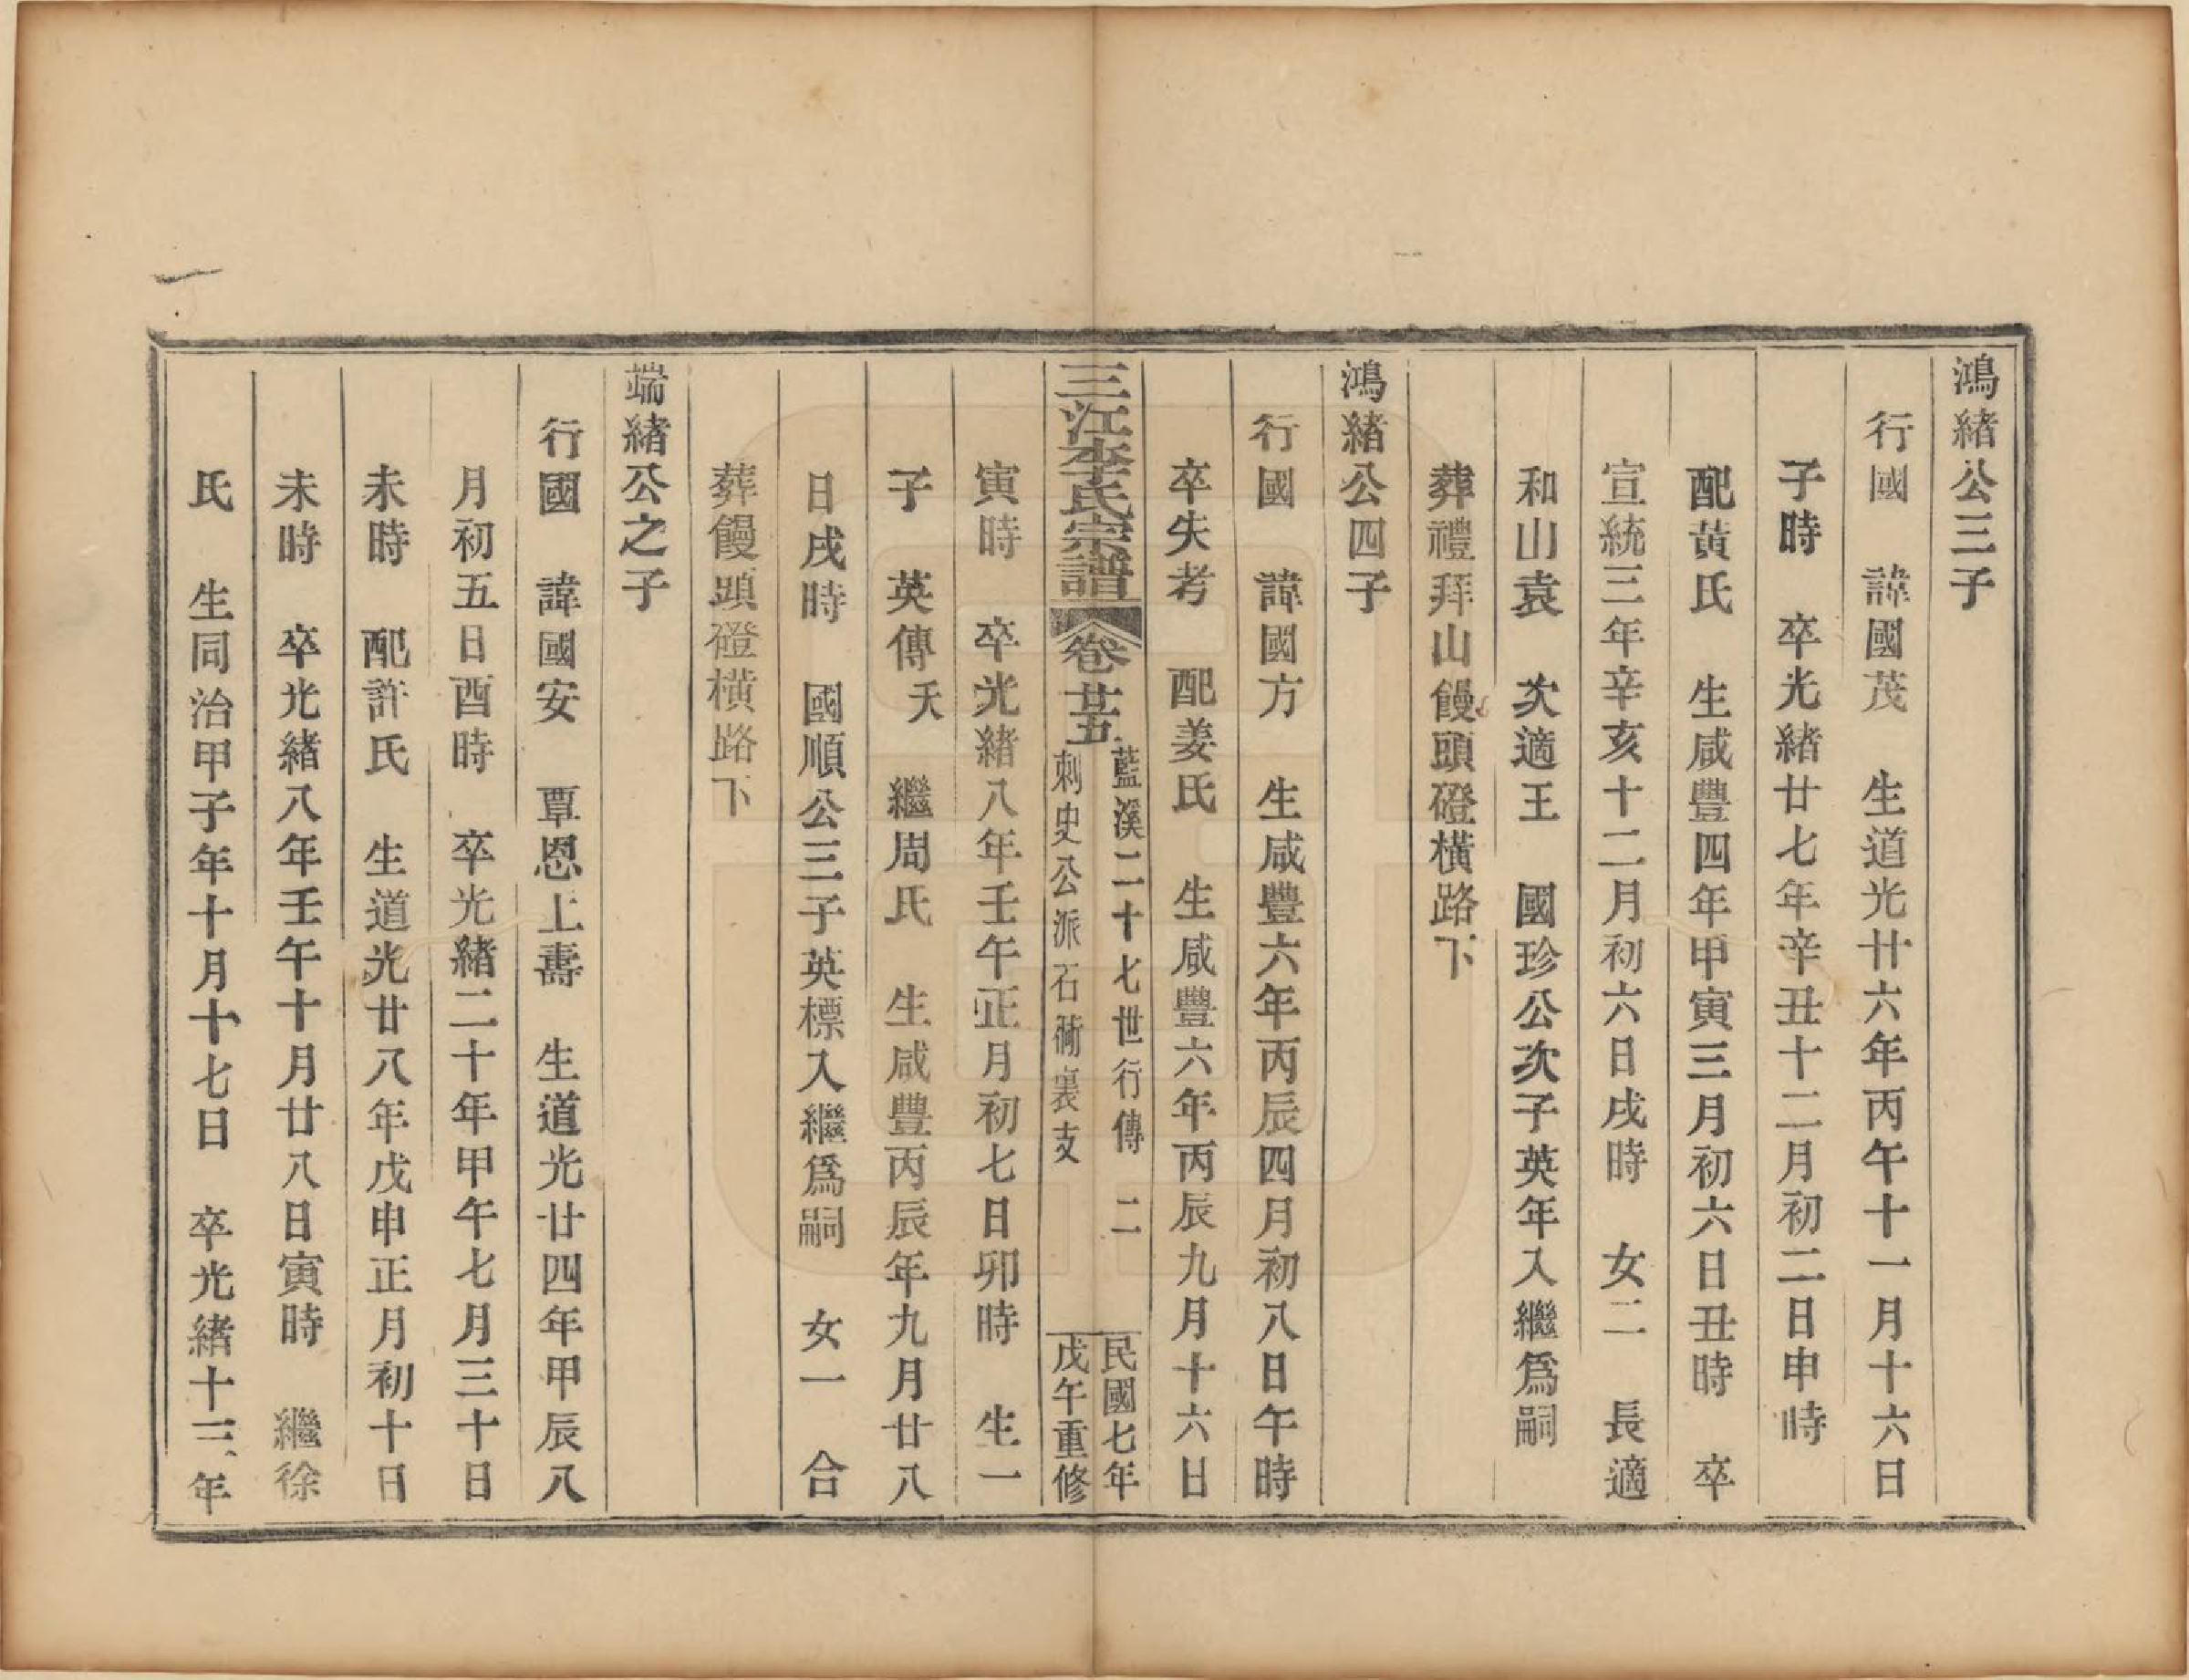 鴻緒公三子
行國　諱國茂　生道光廿六年丙午十一月十六日
子時　卒光緒廿七年辛丑十二月初二日申時
配黃氏　生咸豐四年甲寅三月初六日丑時　卒
宣統三年辛亥十二月初六日戌時　女二　長適
和山袁　次適王　國珍公次子英年入繼爲嗣
葬禮拜山饅頭磴橫路下
鴻緒公四子
行國　諱國方　生咸豐六年丙辰四月初八日午時
卒失考　配姜氏　生咸豐六年丙辰九月十六日
三江李氏宗譜　卷廿五　藍溪二十七世行傳　二　民國七年
刺史公派石衕裏支　戊午重修
寅時　卒光緒八年壬午正月初七日卯時　生一
子　英傳夭　繼周氏　生咸豐丙辰年九月廿八
日戌時　國順公三子英標入繼爲嗣　女一　合
葬饅頭磴橫路下
端緒公之子
行國　諱國安　覃恩上壽　生道光廿四年甲辰八
月初五日酉時　卒光緒二十年甲午七月三十日
未時　配許氏　生道光廿八年戊申正月初十日
未時　卒光緒八年壬午十月廿八日寅時　繼徐
氏　生同治甲子年十月十七日　卒光緒十三年